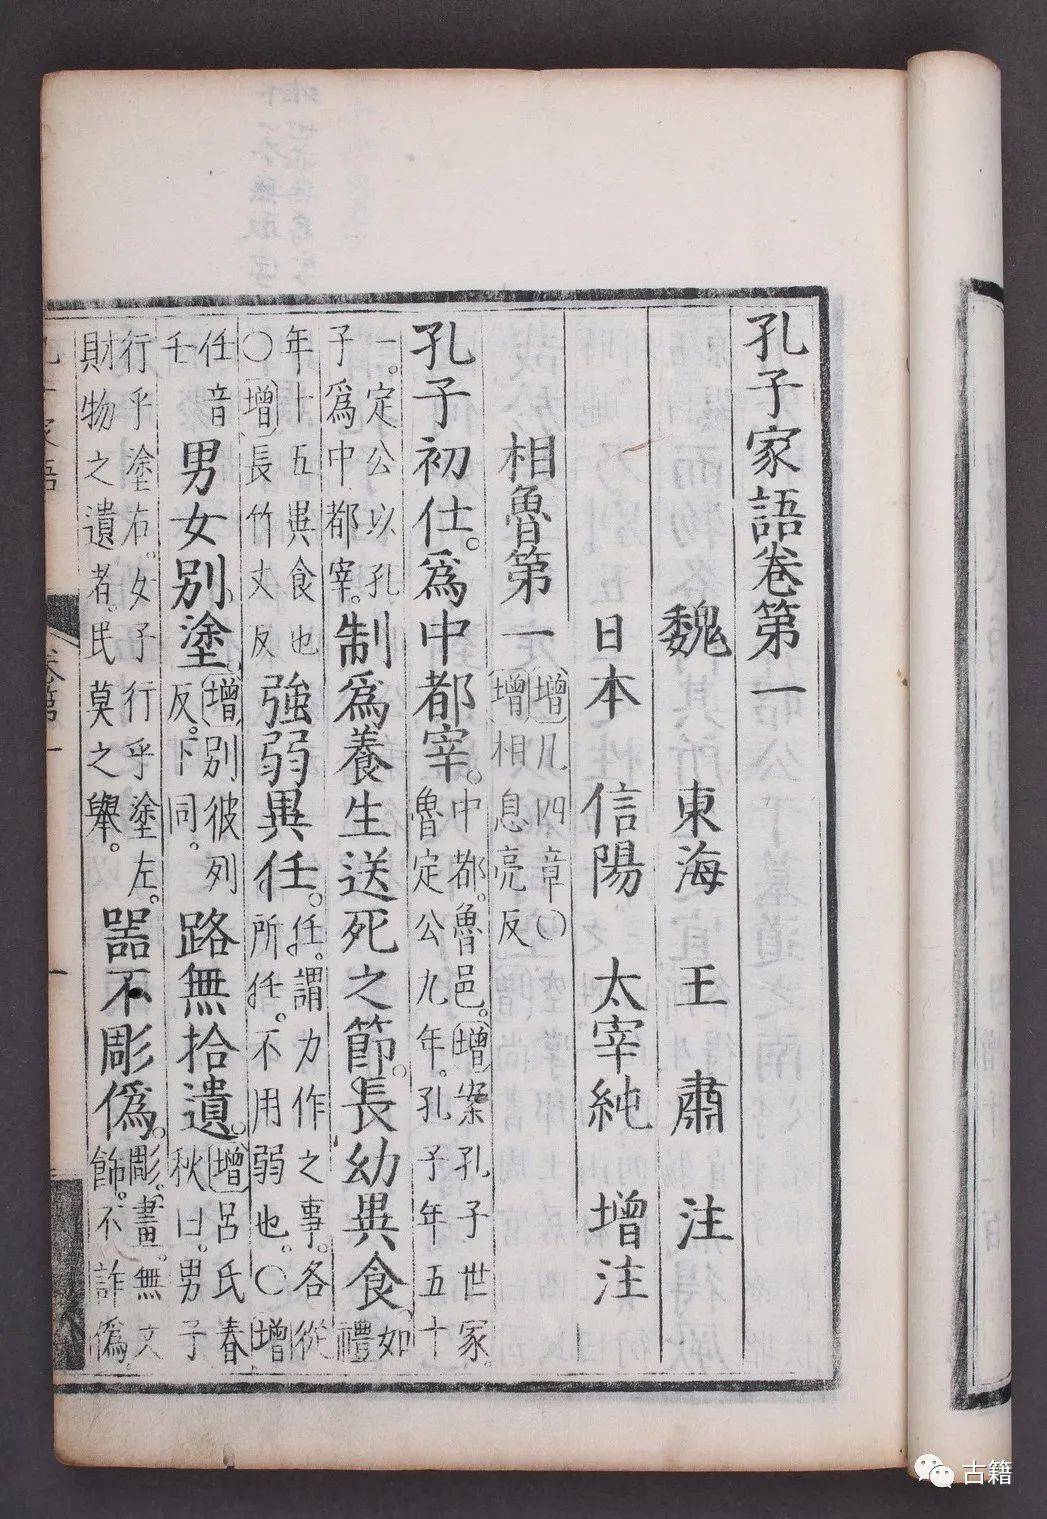 孔子家語卷第一
魏 東海 王 肅 注
日本 信陽 太宰純 增注
相魯第一 增凡四章〇增相息亮反
孔子初仕。爲中都宰。中都。魯邑。增案孔子世家。魯定公九年。孔子年五十
一。定公以孔子爲中都宰。制爲養生送死之節。長幼異食如禮
年十五異食也〇增長竹丈反強弱異任。任。謂力作之事。各從所任。不用弱也。〇增
任音壬男女別塗增別彼列反。下同。路無拾遺。增呂氏春秋曰。男子
行乎塗右。女子行乎塗左。財物之遺者。民莫之舉。器不彫僞。彫。畫。無文飾。不詐僞。
卷第一
一
古籍